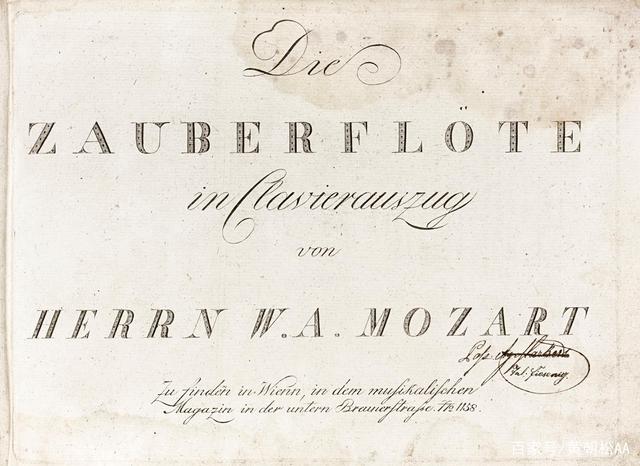 Die
ZAUBERFLÖTE
in Clavierauszug
von
HERRN W. A. MOZART
Zu finden in Wienn, in dem musikalischen
Magazin in der untern Braunerstrasse. No 1158.
百家号/黄朝松AA